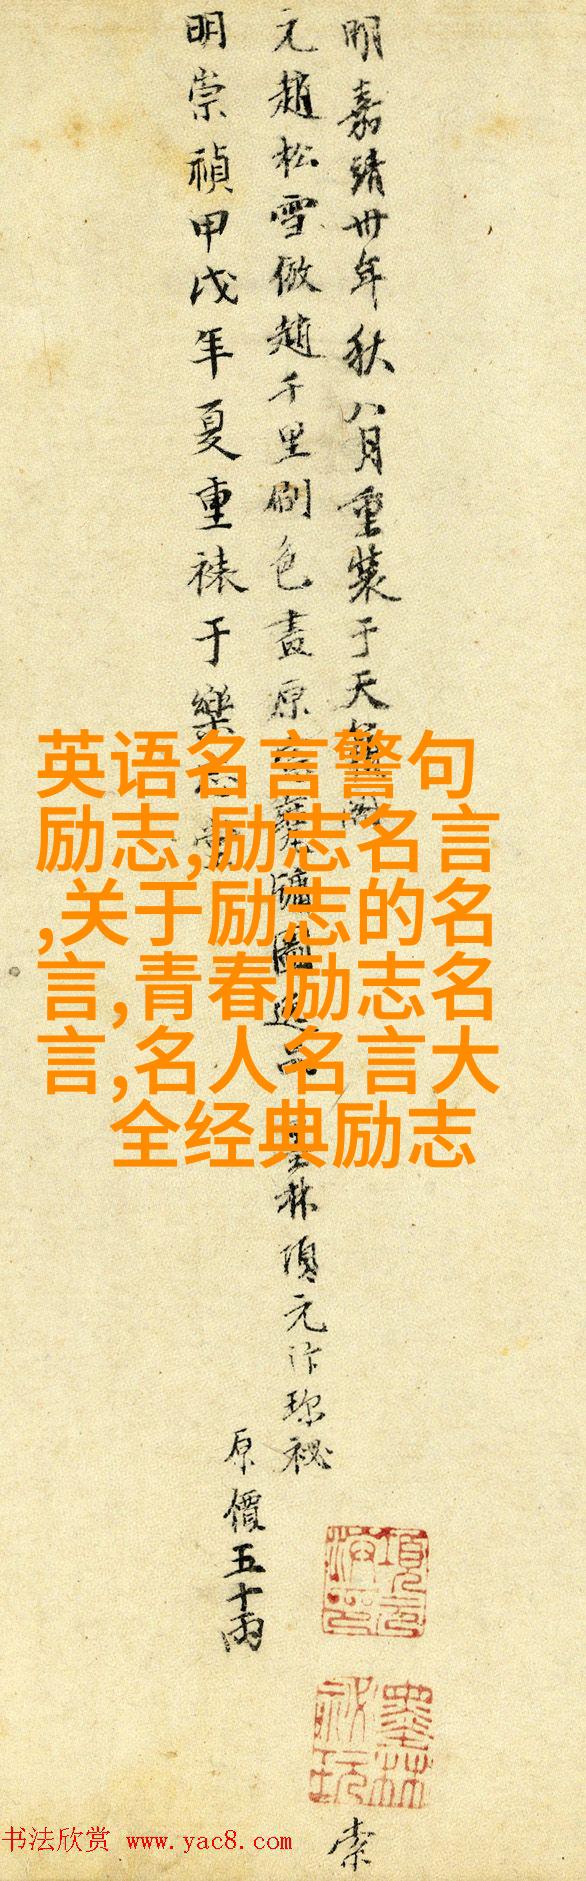 明嘉靖卅年秋八月重裝于天籟閣
元趙松雪倣趙千里刷色畫原
圖逸品墨林項元汴珍祕
明崇禎甲戌年夏重裱于樂志堂
原價五十兩
英语名言警句
励志,励志名言
,关于励志的名
言,青春励志名
言,名人名言大
全经典励志
項元汴印
墨林祕玩
索
书法欣赏 www.yac8.com